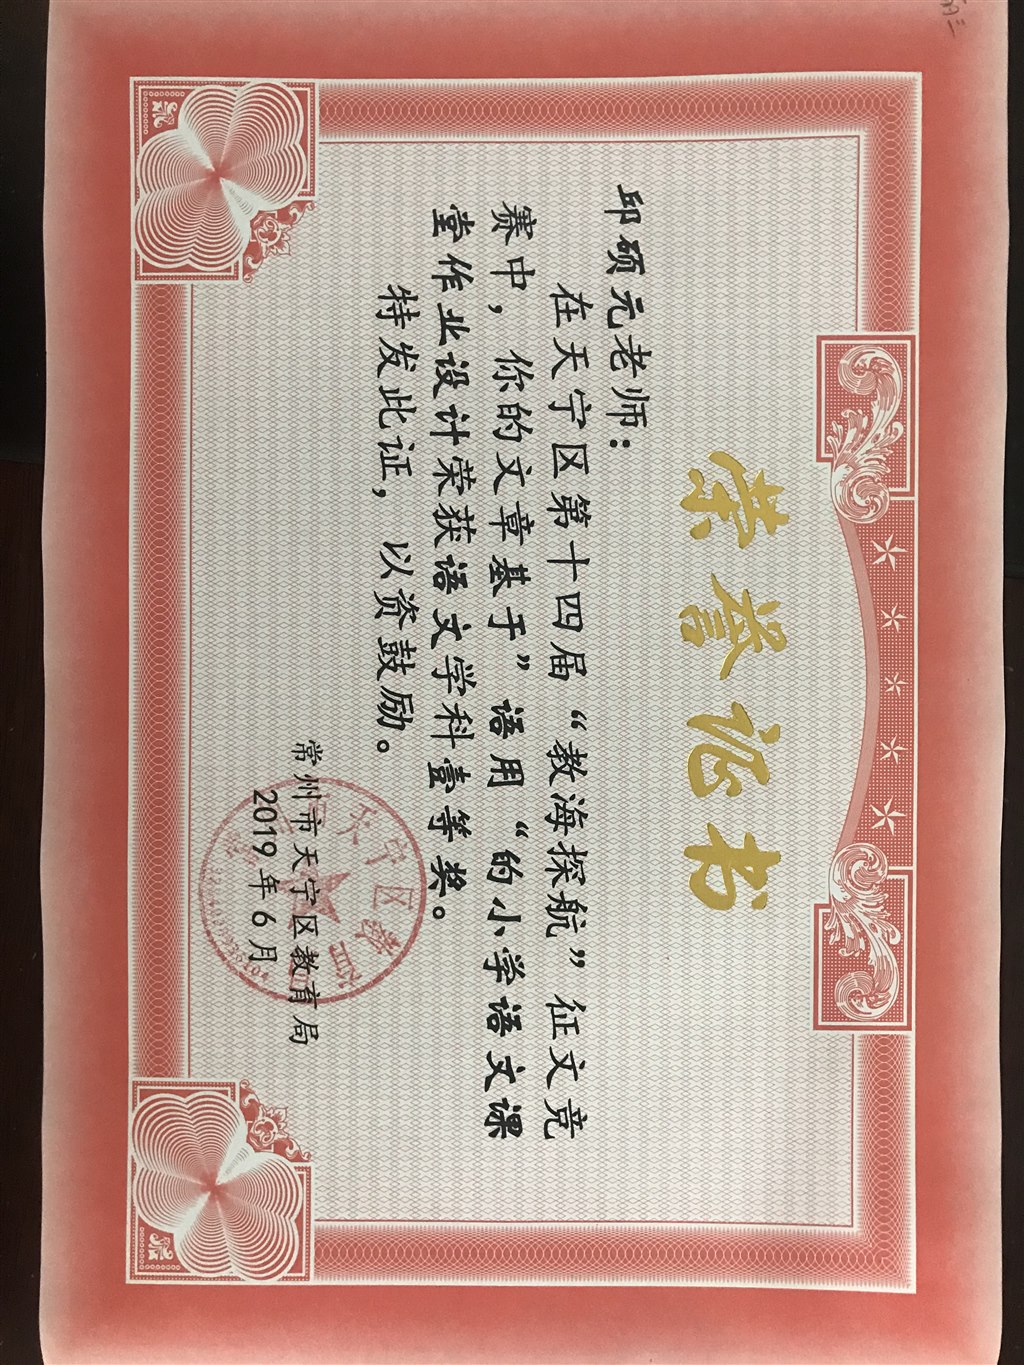 荣誉证书
邱硕元老师：
在天宁区第十四届“教海探航”征文竞
赛中，你的文章基于”语用“的小学语文课
堂作业设计荣获语文学科壹等奖。
特发此证，以资鼓励。
常州市天宁区教育局
2019年6月
天宁区教